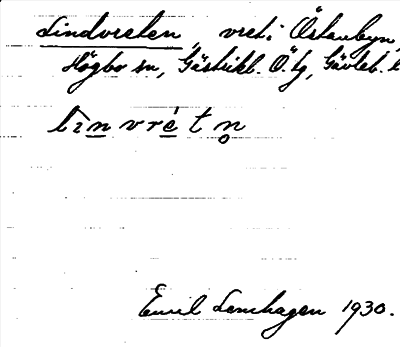 Lindvreten, vret i Östanbyn,
Högbo sn, Gästrikl. Ö. tg, Gävleb. l
līnvrètn̥
Emil Lenhagen 1930.